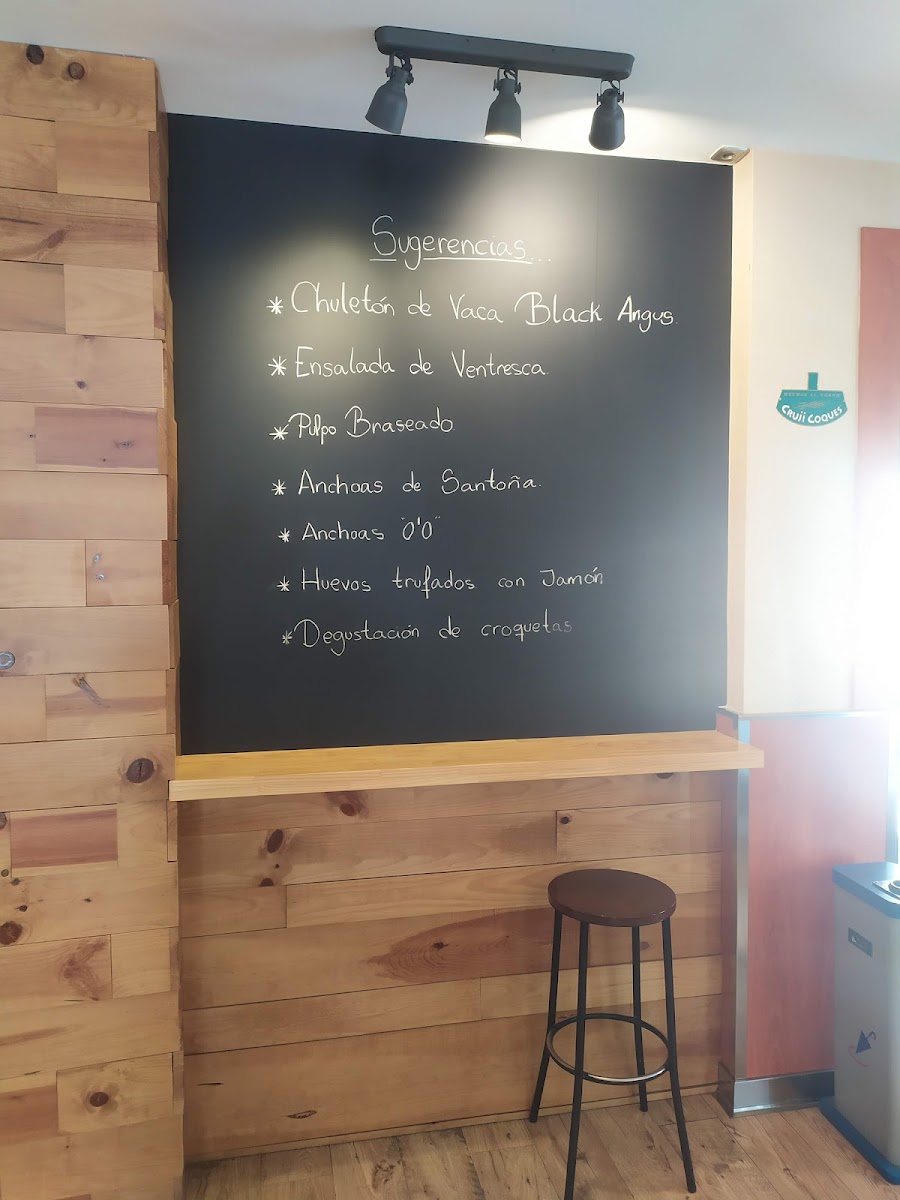 Sugerencias...
* Chuletón de Vaca Black Angus.
* Ensalada de Ventresca.
* Pulpo Braseado
* Anchoas de Santoña.
* Anchoas "0'0"
* Huevos trufados con Jamón
* Degustación de croquetas
CRUJI COQUES